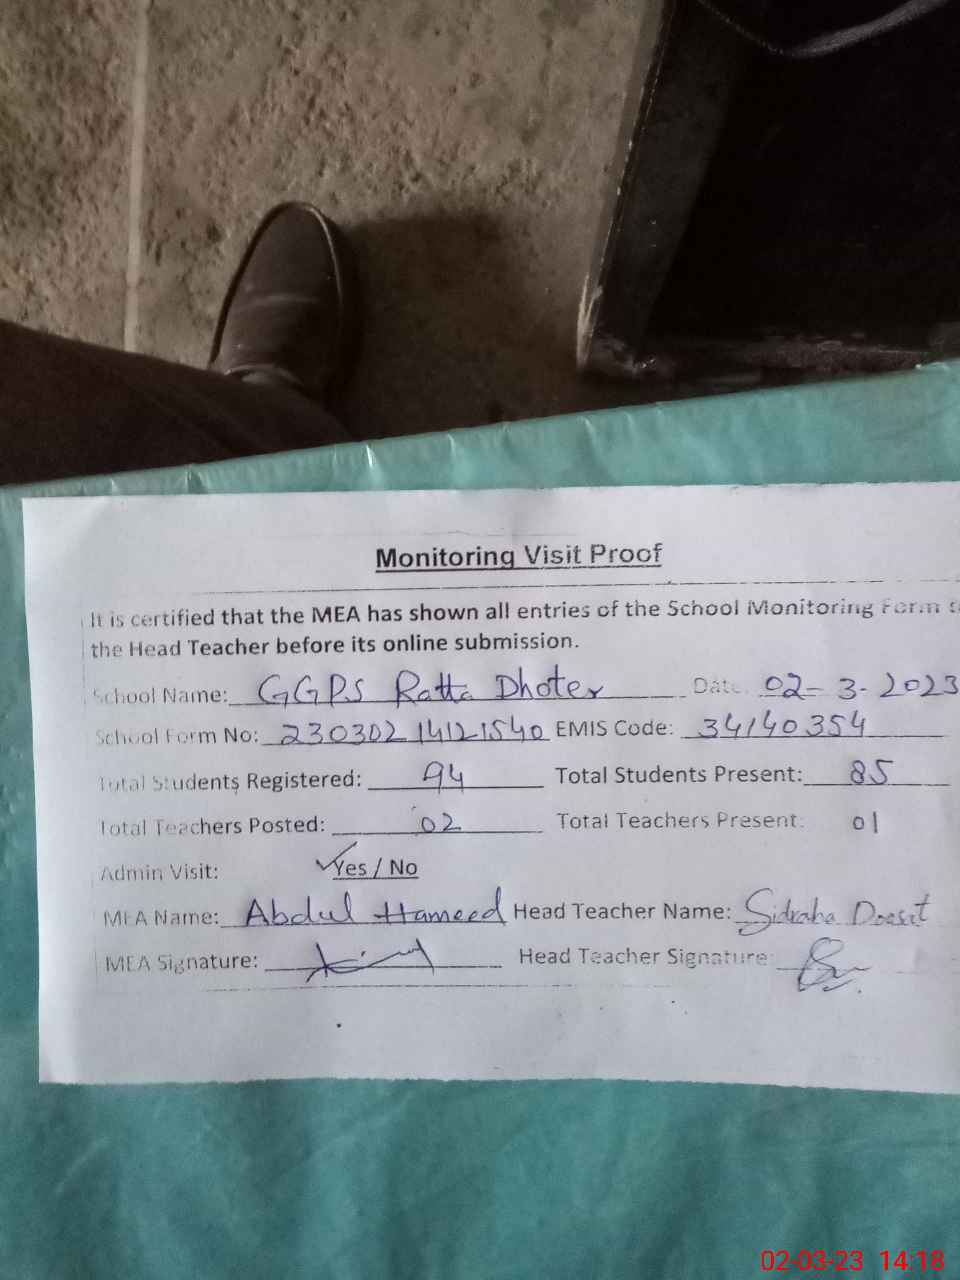 Monitoring Visit Proof
It is certified that the MEA has shown all entries of the School Monitoring Form
the Head Teacher before its online submission.
School Name: GGPS Ratta Dhoter Date: 02-3-2023
School Form No: 23030214121540 EMIS Code: 34140354
Total Students Registered: 94 Total Students Present: 85
Total Teachers Posted: 02 Total Teachers Present: 01
Admin Visit: Yes / No
MEA Name: Abdul Hameed Head Teacher Name:
MEA Signature: Head Teacher Signature:
02-03-23 14:18